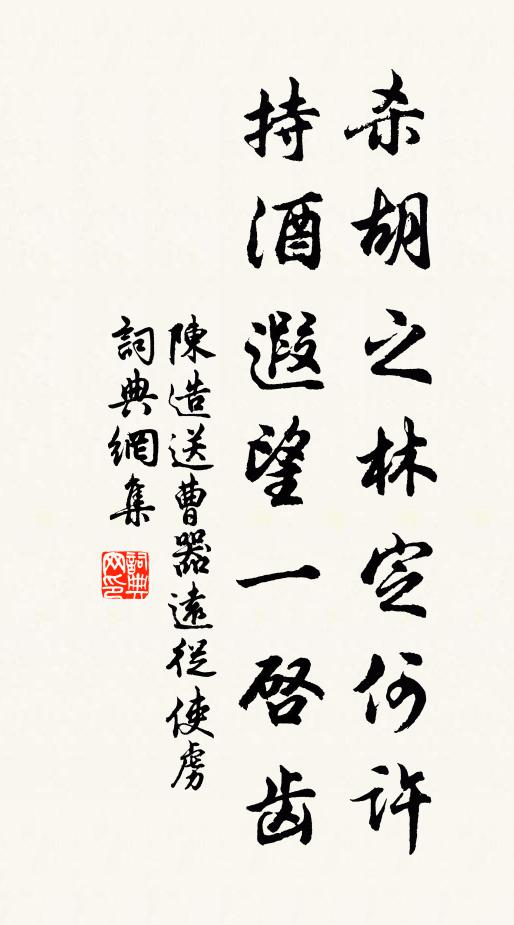 杀胡之林定何许
持酒遐望一启齿
陳造送曹器遠從使虜
詞典網集
詞典网印